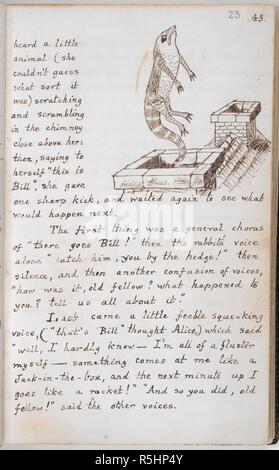 23 43.
heard a little
animal (she
couldn't guess
what sort it
was) scratching
and scrambling
in the chimney
close above her:
then, saying to
herself "this is
Bill", she gave
one sharp kick, and waited again to see what
would happen next.
The first thing was a general chorus
of "there goes Bill!" then the rabbit's voice
alone "catch him, you by the hedge!" then
silence, and then another confusion of voices,
"how was it, old fellow? what happened to
you? tell us all about it."
Last came a little feeble squeaking
voice, ("that's Bill" thought Alice,) which said
"well, I hardly know—I'm all of a fluster
myself—something comes at me like a
Jack-in-the-box, and the next minute up I
goes like a rocket!" "And so you did, old
fellow!" said the other voices.
alamy
Image ID: R5HP4Y
www.alamy.com